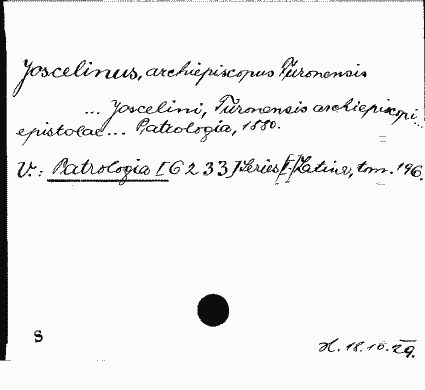 Joscelinus, archiepiscopus Turonensis
... Joscelini, Turonensis archiepiscopi ...
epistolae... Patrologia, 1880.
V.: Patrologia [6233] Series [I-] Latine, tom. 196.
8
H. 18.10.29.